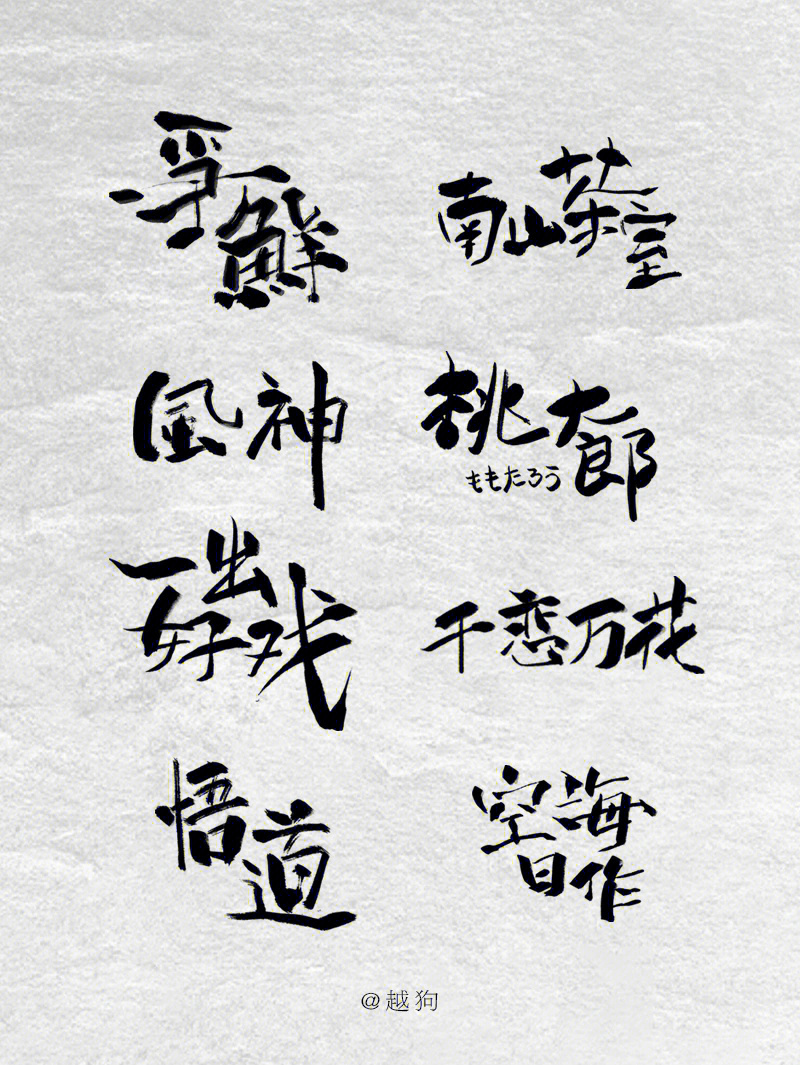 爭鮮
南山茶室
風神
桃太郎
ももたろう
一出好戏
千恋万花
悟道
空海日作
@越狗